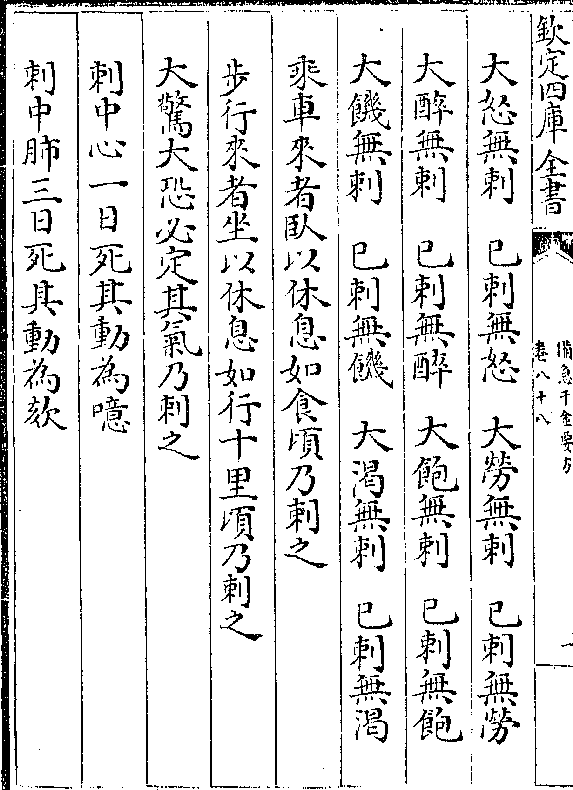 欽定四庫全書
備急千金要方
卷八十八
一
大怒無刺 已刺無怒 大勞無刺 已刺無勞
大醉無刺 已刺無醉 大飽無刺 已刺無飽
大饑無刺 已刺無饑 大渴無刺 已刺無渴
乘車來者臥以休息如食頃乃刺之
步行來者坐以休息如行十里頃乃刺之
大驚大恐必定其氣乃刺之
刺中心一日死其動為噫
刺中肺三日死其動為欬